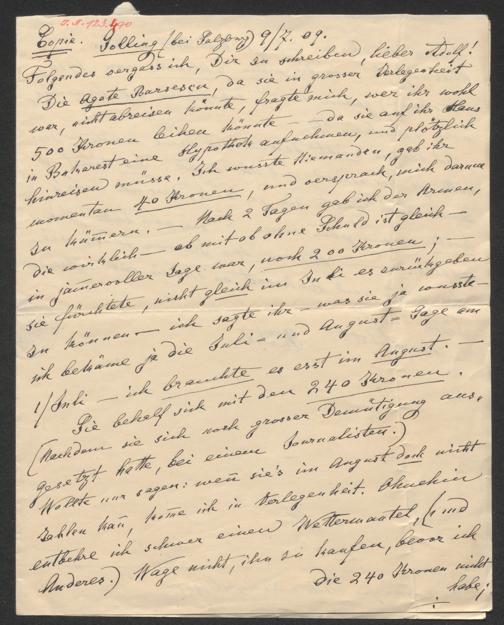 I.N. 123.470
Copie. Golling (bei Salzburg) 9/7. 09.
Folgendes vergass ich, Dir zu schreiben, lieber Adolf!
Die Agate Barsescu, da sie in grosser Verlegenheit
war, nicht abreisen könnte, fragte mich, wer ihr wohl
500 Kronen leihen könnte – da sie auf ihr Haus
in Bukarest eine Hypothek aufnehmen, und plötzlich
hinreisen müsse. Ich wusste Niemanden, gab ihr
momentan 40 Kronen, und versprach, mich darum
zu kümmern. – Nach 2 Tagen gab ich der Armen,
die wirklich – ob mit ob ohne Schuld ist gleich –
in jammervoller Lage war, noch 200 Kronen; –
sie fürchtete, nicht gleich im Juli es zurückgeben
zu können – ich sagte ihr – was sie ja wusste –
ich bekäme ja die Juli- und August-Gage am
1/Juli – ich brauchte es erst im August. –
Sie behelf sich mit den 240 Kronen.
(Nachdem sie sich noch grosser Demütigung aus-
gesetzt hatte, bei einem Journalisten.)
Wollte nur sagen: wenn sie's im August doch nicht
zahlen kann, komme ich in Verlegenheit. Ohnehin
entbehre ich schwer einen Wettermantel, (und
Anderes.) Wage nicht, ihn zu kaufen, bevor ich
die 240 Kronen nicht
habe;